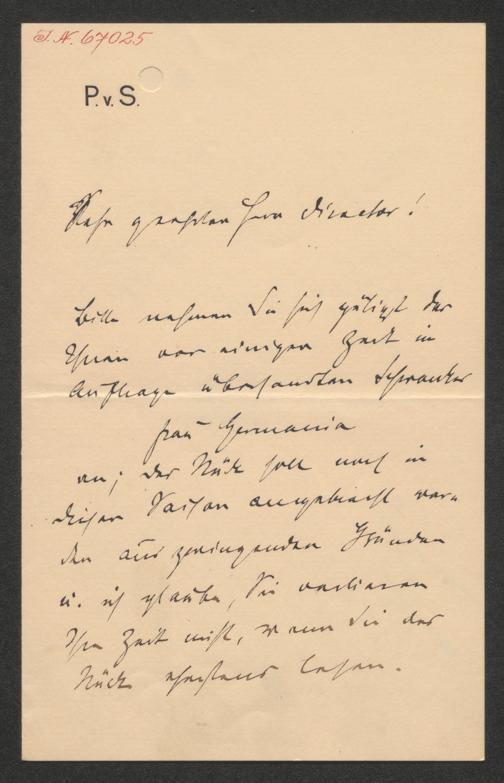 I.N. 67025
P.v.S.
Sehr geehrter Herr Director!
Bitte nehmen Sie sich gütigst des
Ihnen vor einiger Zeit in
Auftrage übersandten Schwankes
Frau Germania
an; das Stück soll noch in
dieser Saison angebracht wer-
den aus zwingenden Gründen
u. ich glaube, Sie verlieren
Ihre Zeit nicht, wenn Sie das
Stück ehestens lesen.